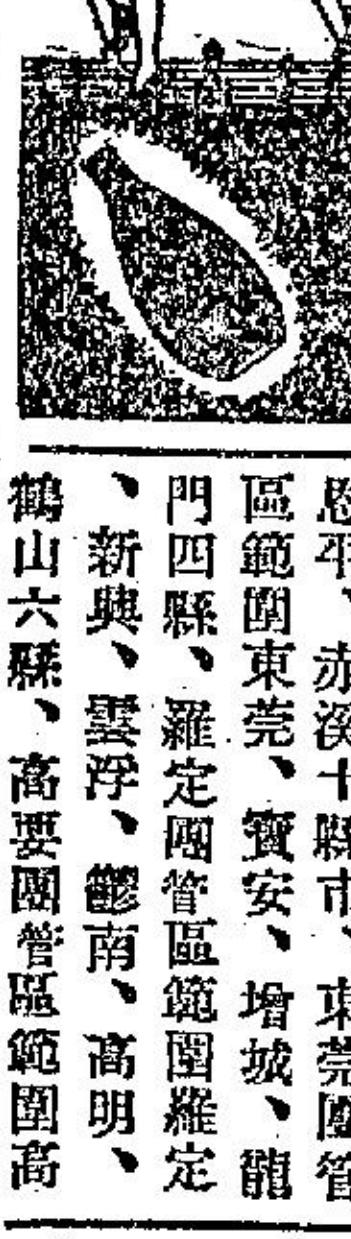 恩平、赤溪十縣市、東莞團管
區範圍東莞、寶安、增城、龍
門四縣、羅定團管區範圍羅定
、新興、雲浮、鬱南、高明、
鶴山六縣、高要團管區範圍高